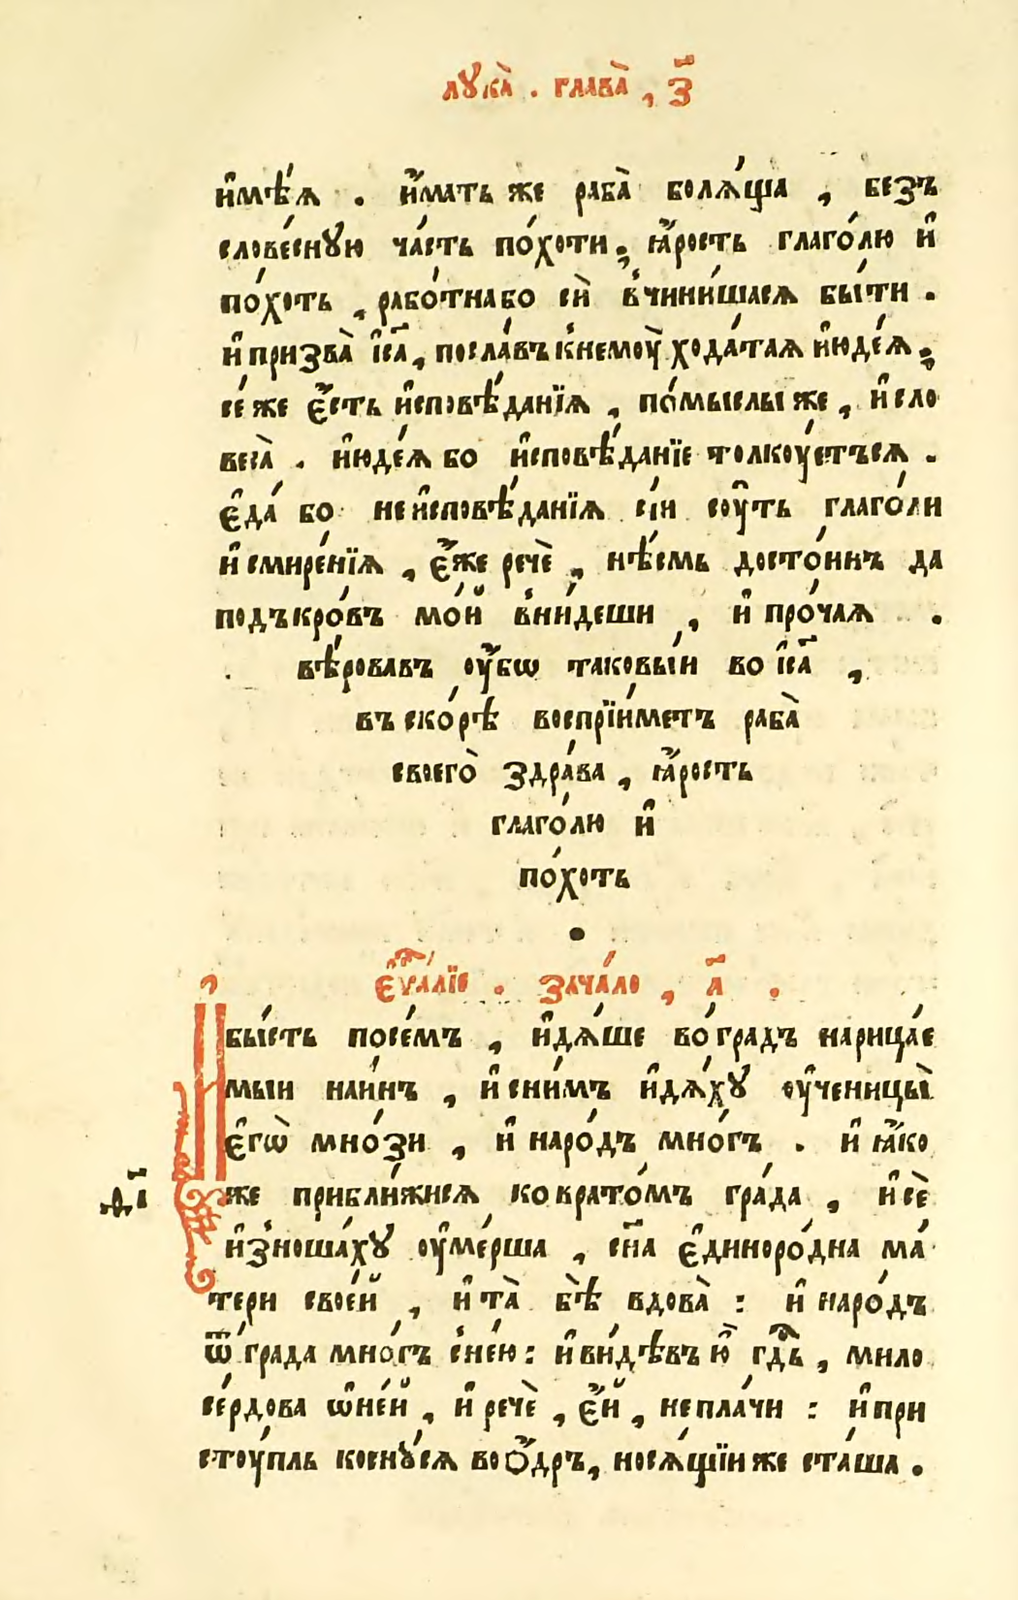 лꙋка̀ . глава̀ , з҃
и҆мѣ́ѧ . и҆́мать же раба̀ болѧ́ща , безъ
слове́сную ча́сть по́хоти , ꙗ҆́рость глаго́лю и҆
по́хоть , рабо́тнабо сїѝ вчини́шасѧ бы́ти .
и҆призва̀ і҆са҃ , посла́въ кнемоу̀ хода́таѧ и҆юде́ѧ ,
се́ же є҆́сть и҆сповѣ́данїѧ , по́мыслы же , и҆ сло
веса̀ . и҆юде́ѧ бо и҆сповѣ́данїе толкоу́етъсѧ .
є҆да́ бо неи҆сповѣ́данїѧ сі́и соу́ть глаго́ли
и҆ смире́нїѧ , є҆́же речѐ , нѣ́смь досто́инъ да
подъкро́въ мо́й вни́деши , и҆ про́чаѧ .
вѣ́ровавъ оу҆́бѡ таковы́и во і҆са҃ ,
въ ско́рѣ воспрїи́метъ раба̀
своего̀ здра́ва , ꙗ҆́рость
глаго́лю и҆
по́хоть
є҆ѵⷢ҇а́лїе . зача́ло , л҃ .
И҆ бы́сть посе́мъ , и҆дѧ́ше во́ градъ нарица́е
мыи наи́нъ , и҆ сни́мъ и҆дѧ́хꙋ оу҆ченицы̀
є҆гѡ̀ мно́зи , и҆ наро́дъ мно́гъ . и҆ ꙗ҆́ко
же прибли́жисѧ ко врато́мъ гра́да , и҆ сѐ
и҆зноша́хꙋ оу҆ме́рша , сн҃а є҆диноро́дна ма́
тери свое́й , и҆ та̀ бѣ̀ вдова̀ : и҆ наро́дъ
ѿ гра́да мно́гъ снею : и҆ ви́дѣвъ ю҆̀ гд҇ь , мило
се́рдова ѡ҆не́й , и҆ речѐ , є҆́й , непла́чи : и҆ при
стоу́пль коснꙋ́сѧ во ѻ҆́дръ , носѧ́щїи же ста́ша .